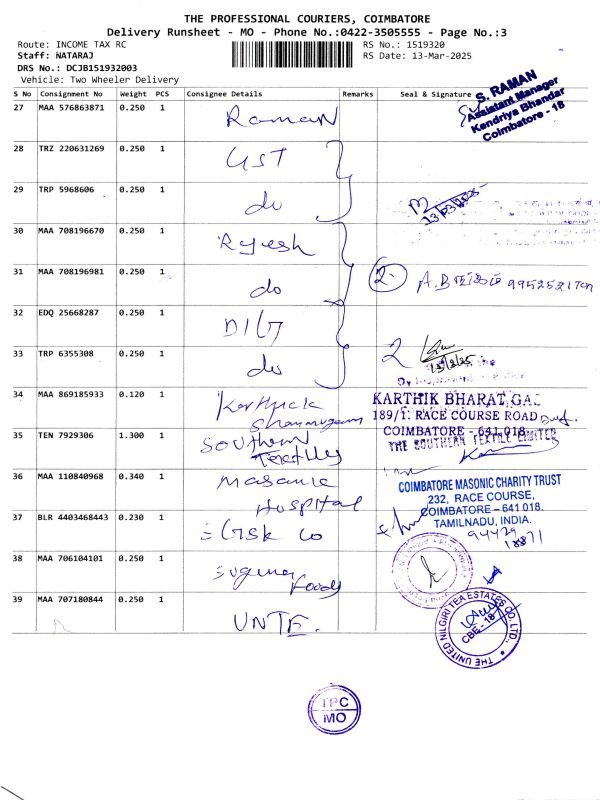 THE PROFESSIONAL COURIERS, COIMBATORE
Delivery Runsheet - MO - Phone No.:0422-3505555 - Page No.:3
Route: INCOME TAX RC
RS No.: 1519320
Staff: NATARAJ
RS Date: 13-Mar-2025
DRS No.: DCJB151932003
Vehicle: Two Wheeler Delivery
S No Consignment No Weight PCS Consignee Details Remarks Seal & Signature
27 MAA 576863871 0.250 1 Raman
S. RAMAN
Assistant Manager
Kendriya Bhandar
Coimbatore - 18
28 TRZ 220631269 0.250 1 GST
29 TRP 5968606 0.250 1 do
13/03/2025
30 MAA 708196670 0.250 1 Rajesh
31 MAA 708196981 0.250 1 do
2 A.B
32 EDQ 25668287 0.250 1 DIG
33 TRP 6355308 0.250 1 do
2
13/3/25
34 MAA 869185933 0.120 1 Karthick
Shanmugam
KARTHIK BHARAT GAS
189/1. RACE COURSE ROAD
COIMBATORE - 641 018
35 TEN 7929306 1.300 1 Southern
Textiles
THE SOUTHERN TEXTILE LIMITED
36 MAA 110840968 0.340 1 Masanic
Hospital
COIMBATORE MASONIC CHARITY TRUST
232, RACE COURSE,
COIMBATORE – 641 018.
TAMILNADU, INDIA.
94429
18871
37 BLR 4403468443 0.230 1
38 MAA 706104101 0.250 1
Foods
39 MAA 707180844 0.250 1 UNTE.
THE UNITED NILGIRI TEA ESTATES CO. LTD.,
CBE - 18
TPC
MO